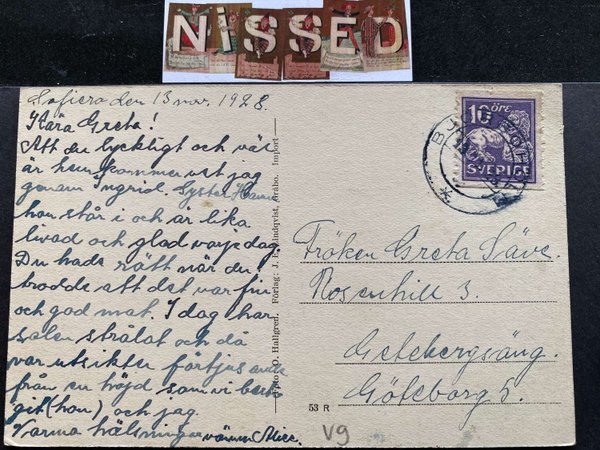 NiSSED
Sofiero den 13 nov. 1928.
Kära Greta!
Att du lyckligt och väl
är hemkommen vet jag
genom Ingrid. Syster Hanna
hon står i och är lika
livad och glad varje dag.
Du hade rätt när du
trodde att det var fin
och god mat. I dag har
solen strålat och då
var utsikten förtjusande
från en höjd som vi
git (hon) och jag.
Varma hälsningar vännen Alice.
Foto: O. Hallgren. Förlag: J. E. Lindqvist, Gråbo. Import
53 R
10 ÖRE
SVERIGE
Fröken Greta Säve.
Rosenhill 3.
Getebergsäng.
Göteborg 5.
V9